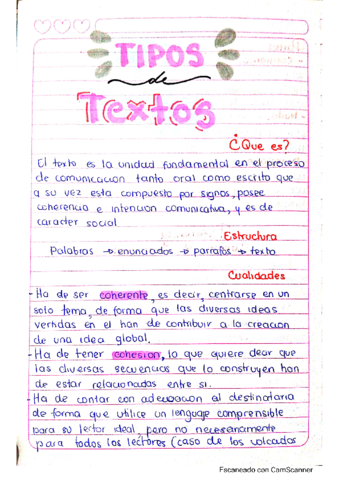 TIPOS
de
Textos
¿Que es?
El texto es la unidad fundamental en el proceso
de comunicacion tanto oral como escrito que
a su vez esta compuesto por signos, posee
coherencia e intencion comunicativa, y es de
caracter social
Estructura
Palabras → enunciados → parrafos → texto
Cualidades
- Ha de ser coherente, es decir, centrarse en un
solo tema, de forma que las diversas ideas
vertidas en el han de contribuir a la creacion
de una idea global.
- Ha de tener cohesion, lo que quiere decir que
las diversas secuencias que lo construyen han
de estar relacionadas entre si.
- Ha de contar con adecuacion al destinatario
de forma que utilice un lenguaje comprensible
para su lector ideal, pero no necesariamente
para todos los lectores (caso de los volcados
Escaneado con CamScanner